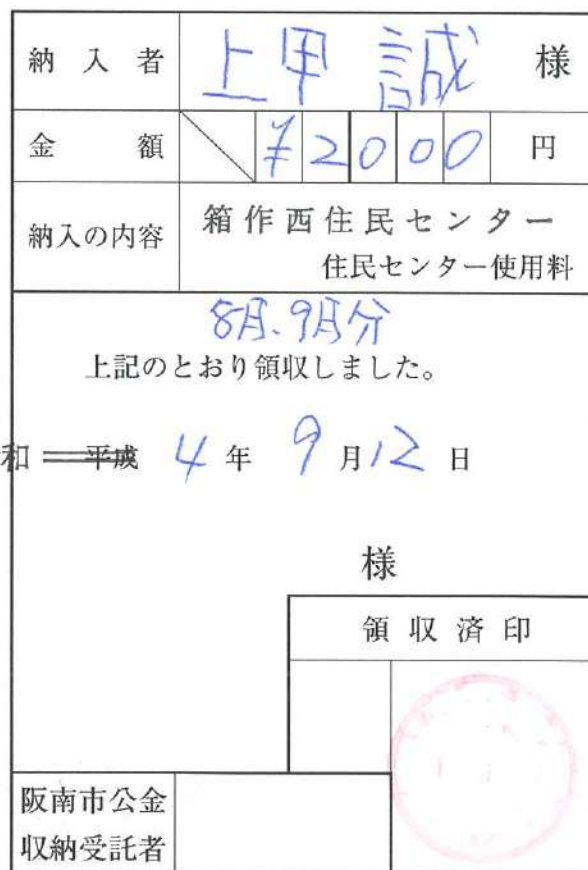 納入者 上甲 誠 様
金額 ¥2000 円
納入の内容 箱作西住民センター
住民センター使用料
8月、9月分
上記のとおり領収しました。
和 平成 4年 9月12日
様
領収済印
阪南市公金
収納受託者